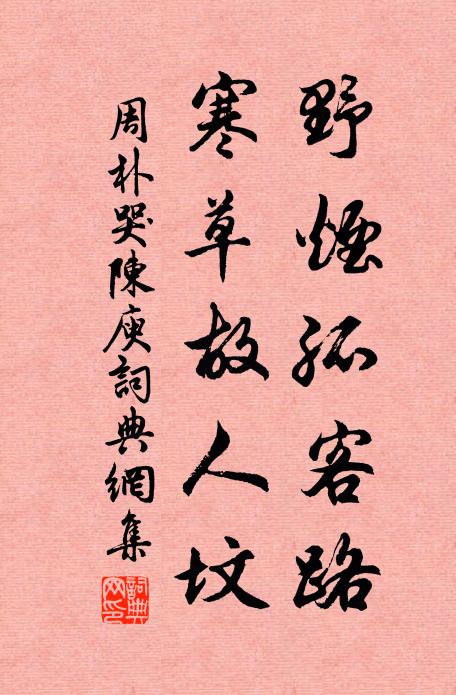 野煙孤客路
寒草故人墳
周朴哭陳庾詞典網集
詞典网印